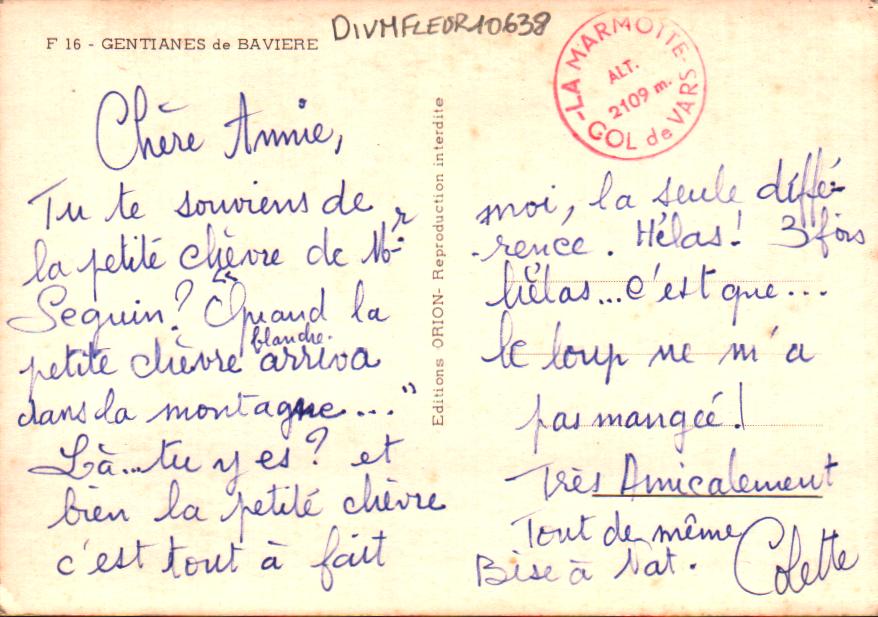 F 16 - GENTIANES de BAVIERE
DIVMFLEUR10638
-LA MARMOTTE-
ALT.
2109 m.
COL de VARS
Chère Annie,
Tu te souviens de
la petite chèvre de Mr
Seguin? "Quand la
petite chèvre blanche arriva
dans la montagne..."
Là... tu y es? et
bien la petite chèvre
c'est tout à fait
Editions ORION - Reproduction interdite
moi, la seule diffé-
-rence. Hélas! 3 fois
hélas... c'est que...
le loup ne m'a
pas mangée!
Très Amicalement
Tout de même
Bise à Nat. Colette